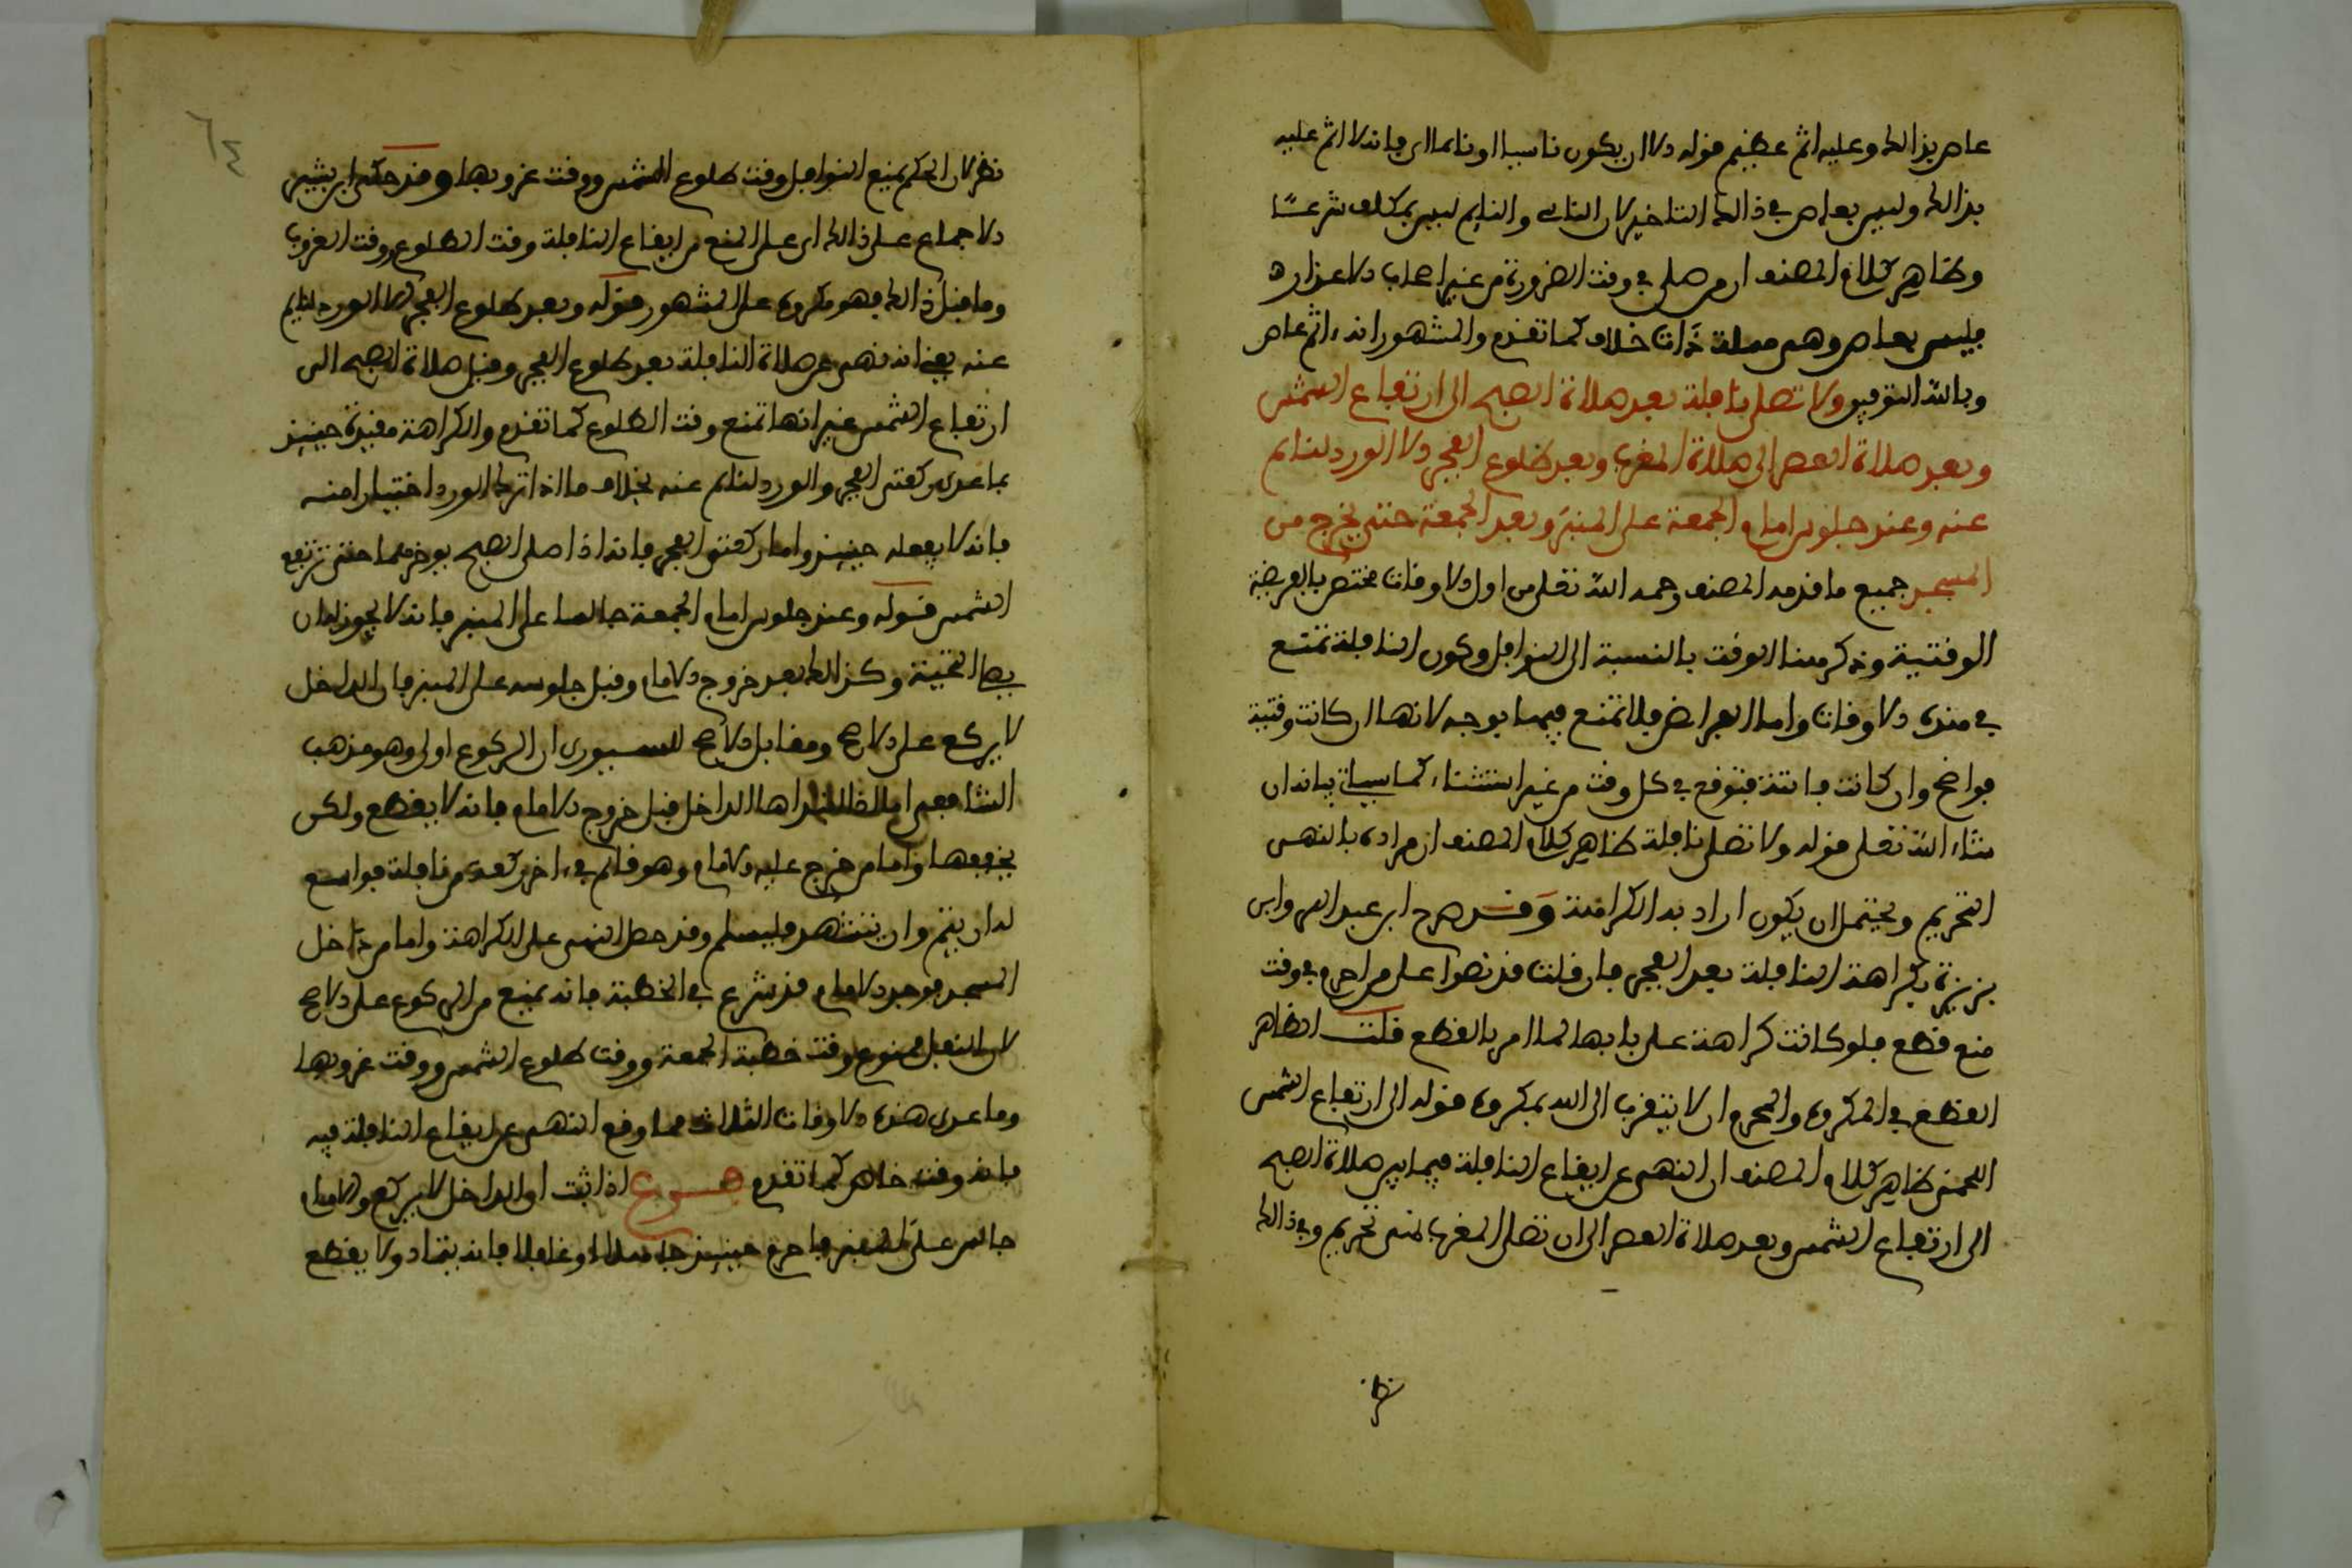 عاص بذالك وعليه اثم عظيم قوله الا ان يكون ناسيا او نائما اي فانه لا اثم عليه
بذالك وليس بعاص في ذالك التاخير لان الناسي والنايم ليس بمكلف شرعا
وظاهر كلام المصنف ان من صلى في وقت الضرورة من غير اصحاب الاعذار
فليس بعاص وهي مسلة ذات خلاف كما تقدم والمشهور انه اثم عاص
وبالله التوفيق ولا تصلى نافلة بعد صلاة الصبح الى ارتفاع الشمس
وبعد صلاة العصر الى صلاة المغرب وبعد طلوع الفجر الا الورد لنائم
عنه وعند جلوس امام الجمعة على المنبر وبعد الجمعة حتى يخرج من
المسجد جميع ما قدمه المصنف رحمه الله تعلى من اول الاوقات مختص بالفريضة
الوقتية وذكر هنا الوقت بالنسبة الى النوافل وكون النافلة تمتنع
في هذه الاوقات واما الفرائض فلا تمنع فيها بوجه لانها ان كانت وقتية
فواضح وان كانت فائتة فتوقع في كل وقت من غير استثناء كما سياتي بيانه ان
شاء الله تعلى قوله ولا تصلى نافلة ظاهر كلام المصنف ان مراده بالنهي
التحريم ويحتمل ان يكون اراد به الكراهة وقد صرح ابن عبد البر وابن
بزيزة بكراهة النافلة بعد الفجر فان قلت قد نصوا على من احرم في وقت
منع قطع فلو كانت كراهة على بابها لما امر بالقطع قلت الظاهر
القطع في المكروه والمحرم ان لا يتقرب الى الله بمكروه قوله الى ارتفاع الشمس
اللخمي ظاهر كلام المصنف ان النهي عن ايقاع النافلة فيما بين صلاة الصبح
الى ارتفاع الشمس وبعد صلاة العصر الى ان تصلى المغرب نهي تحريم وفي ذالك
نظر
نظر لان الحكم يمنع النوافل وقت طلوع الشمس ووقت غروبها وقد حكى ابن بشير
الاجماع على ذالك اي على المنع من ايقاع النافلة وقت الطلوع ووقت الغروب
وما قبل ذالك فهو مكروه على المشهور قوله وبعد طلوع الفجر الا الورد لنايم
عنه يعني انه نهي عن صلاة النافلة بعد طلوع الفجر وقبل صلاة الصبح الى
ارتفاع الشمس غير انها تمنع وقت الطلوع كما تقدم والكراهة مقيدة حينيذ
بما عدى ركعتي الفجر والورد لنائم عنه بخلاف ما اذا ترك الورد اختيارا منه
فانه لا يفعله حينيذ واما ركعتي الفجر فانه اذا صلى الصبح يوخرهما حتى ترتفع
الشمس قوله وعند جلوس امام الجمعة جالسا على المنبر فانه لا يجوز له ان
يصل التحية وكذالك بعد خروج الامام وقبل جلوسه على المنبر فان الداخل
لا يركع على الاصح ومقابل الاصح للسيوري ان الركوع اولى وهو مذهب
الشافعي الداخل قبل خروج الامام فانه لا يقطع ولكن
يخففها واما من خرج عليه الامام وهو قائم في اخر ركعة من نافلة فواسع
له ان يتم وان يتشهد فليسلم وقد حصل النهي على الكراهة واما من دخل
المسجد فوجد الامام قد شرع في الخطبة فانه يمنع من الركوع على الاصح
لان النفل ممنوع وقت خطبة الجمعة ووقت طلوع الشمس ووقت غروبها
وما عدى هذه الاوقات الثلاث مما وقع النهي عن ايقاع النافلة فيه
فانه وقت كما تقدم فـرع اذا ثبت ان الداخل لا يركع والامام
جالس على المنبر فاحرم حينيذ جاهلا او غافلا فانه يتمادى ولا يقطع
٦٤